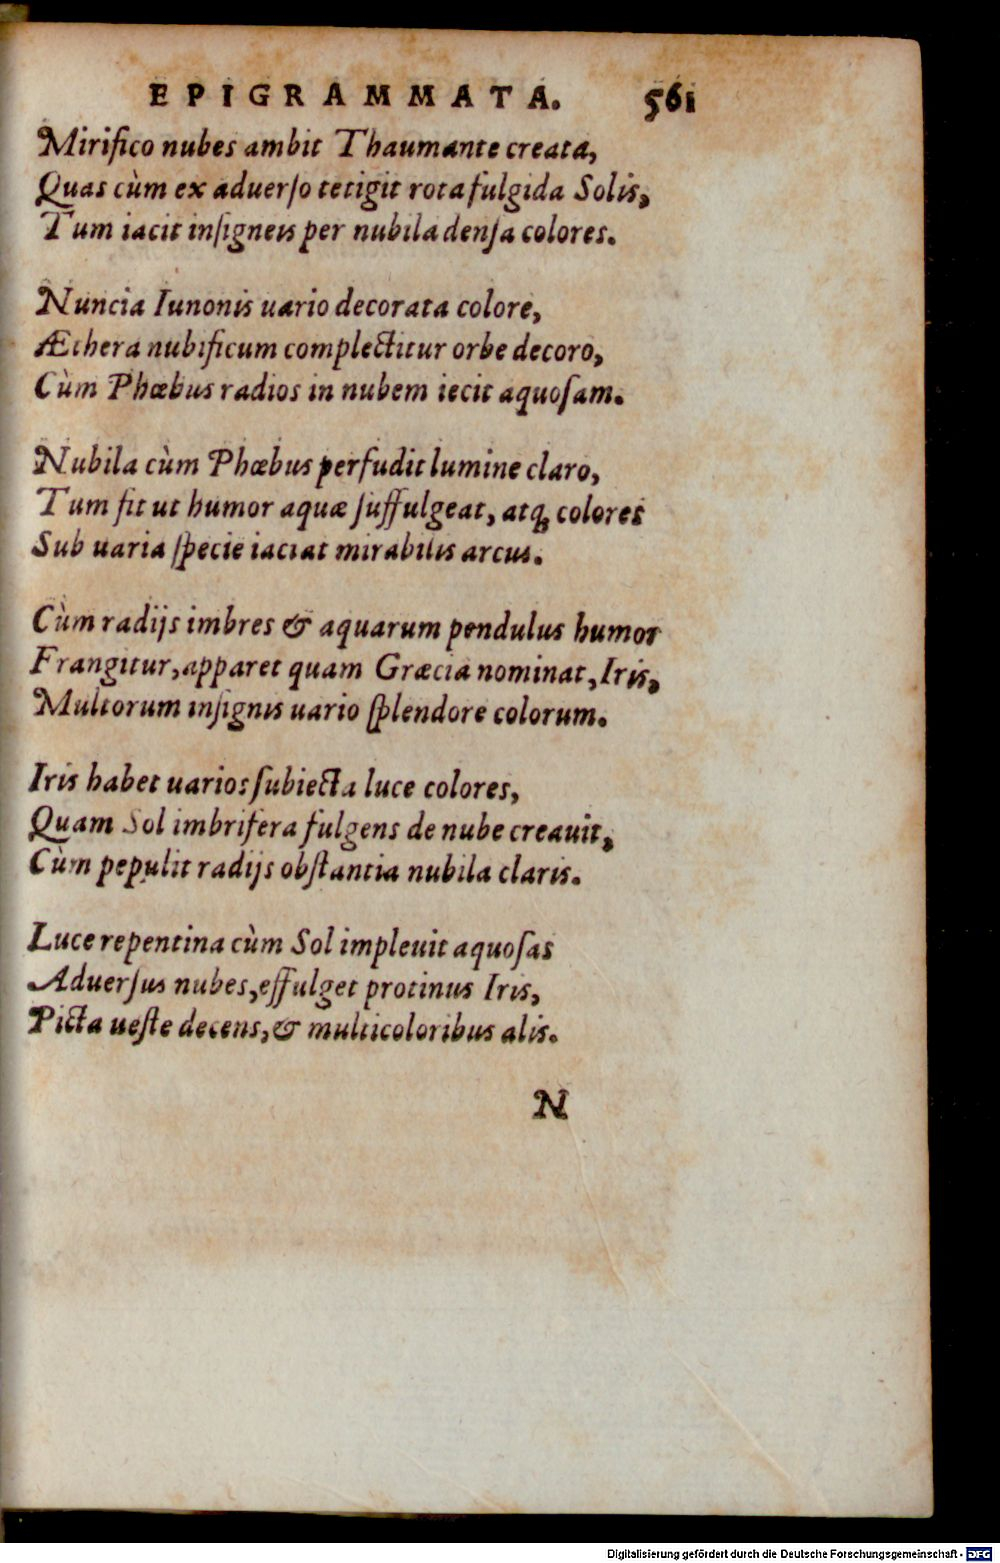 EPIGRAMMATA. 561
Mirifico nubes ambit Thaumante creata,
Quas cùm ex aduerſo tetigit rota fulgida Solis,
Tum iacit inſigneis per nubila denſa colores.
Nuncia Iunonis uario decorata colore,
Æthera nubificum complectitur orbe decoro,
Cùm Phœbus radios in nubem iecit aquoſam.
Nubila cùm Phœbus perfudit lumine claro,
Tum fit ut humor aquæ ſuffulgeat, atq; colores
Sub uaria ſpecie iaciat mirabilis arcus.
Cùm radijs imbres & aquarum pendulus humor
Frangitur, apparet quam Græcia nominat, Iris,
Multorum inſignis uario ſplendore colorum.
Iris habet uarios ſubiecta luce colores,
Quam Sol imbrifera fulgens de nube creauit,
Cùm pepulit radijs obſtantia nubila claris.
Luce repentina cùm Sol impleuit aquoſas
Aduerſus nubes, effulget protinus Iris,
Picta ueſte decens, & multicoloribus alis.
N
Digitalisierung gefördert durch die Deutsche Forschungsgemeinschaft - DFG